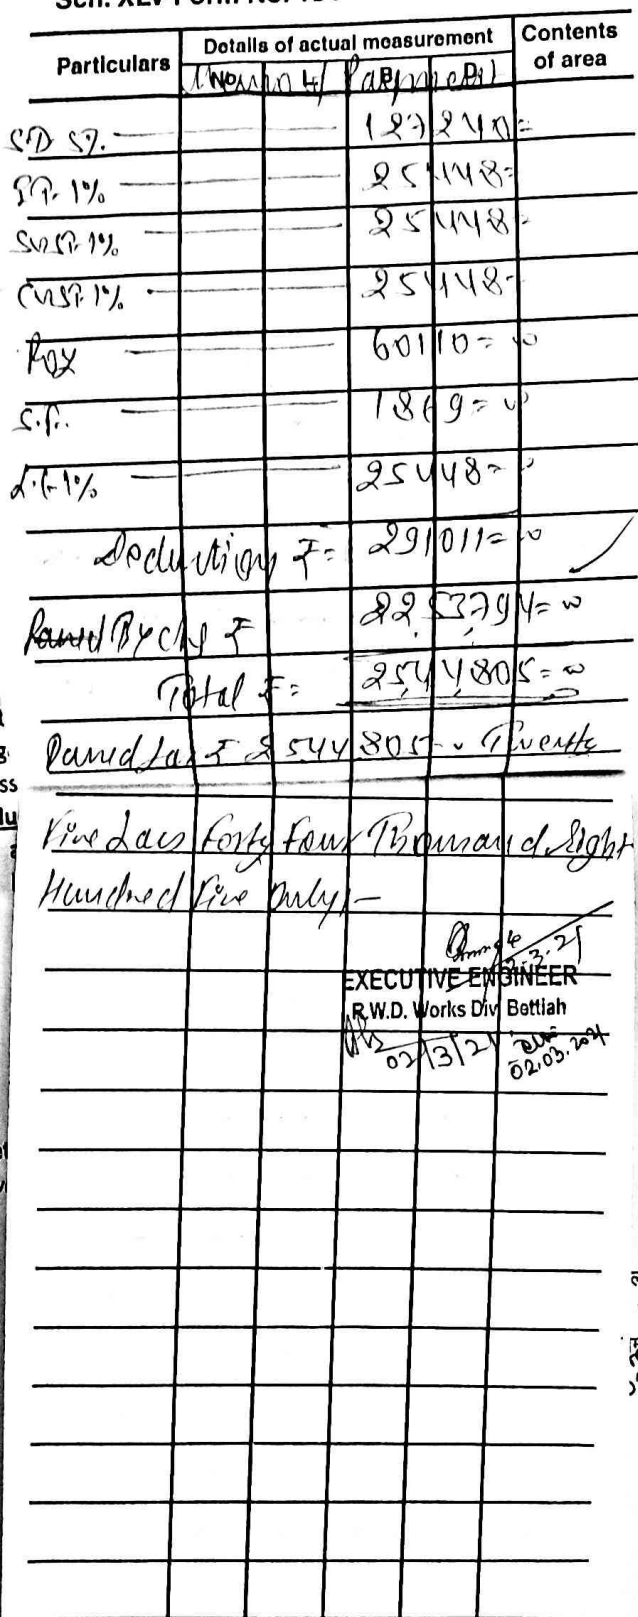 Particulars
Details of actual measurement
Contents of area
No. L B D
Memo of Payment
S.D 5%. 127240=
I.T. 1% 25448=
SGST. 1% 25448=
CGST. 1% 25448=
Roy 60110=00
S.F. 1869=00
L.C. 1% 25448=00
Deduction ₹= 291011=00
Passed By chq ₹ 22,53,794=00
Total ₹= 25,44,805=00
Passed for ₹ 2544805=00 Twenty
Five Lacs Forty Four Thousand Eight
Hundred Five only/-
2.3.21
EXECUTIVE ENGINEER
R.W.D. Works Div Bettiah
02/3/21
02.03.2021